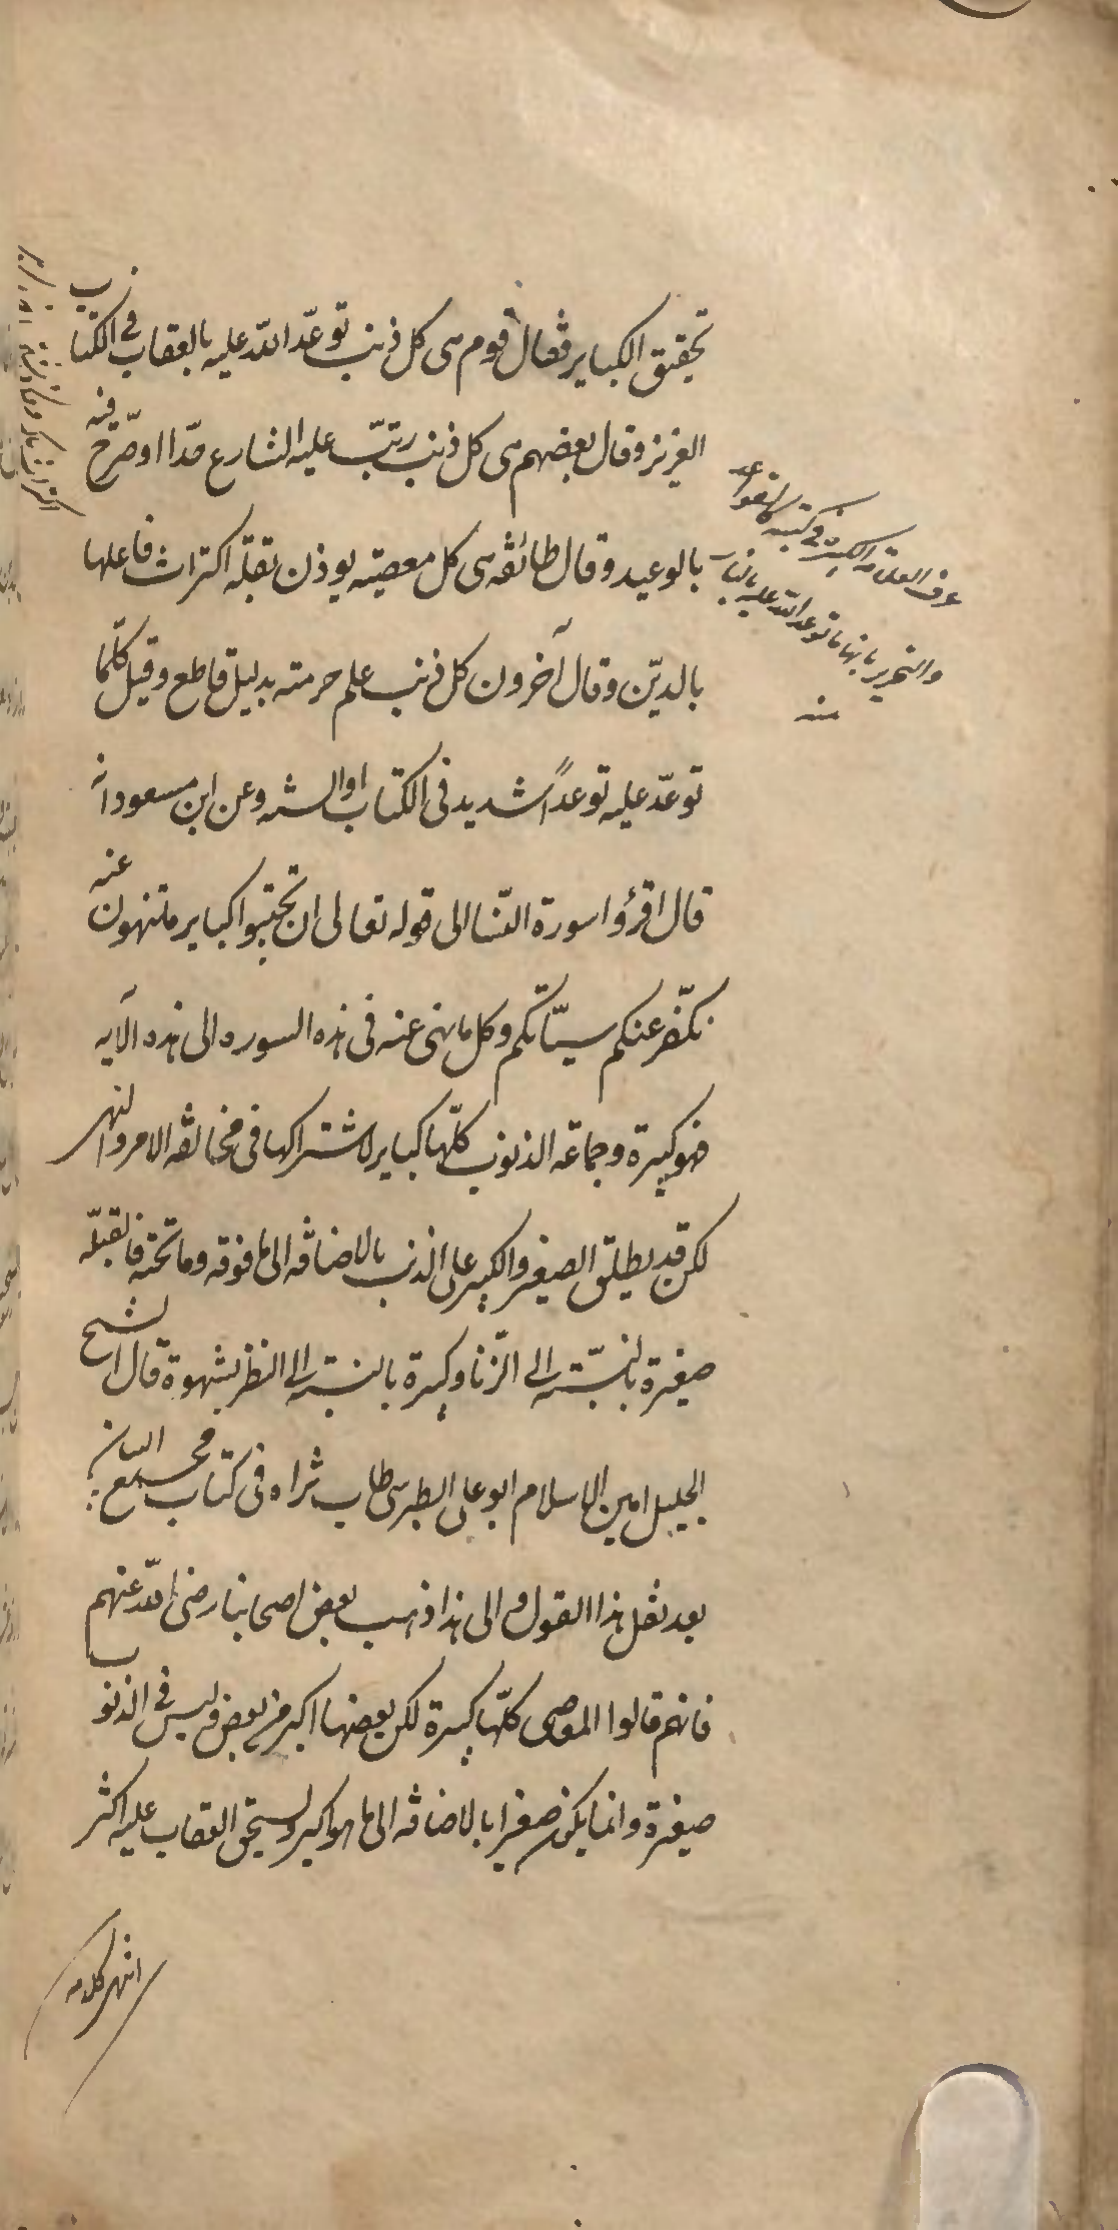 تحقيق الكباير فقال قوم هى كل ذنب توعّد الله عليه بالعقاب فى الكتاب
العزيز وقال بعضهم هى كل ذنب رتّب عليه الشارع حدّا او صرّح فيه
بالوعيد وقال طائفه هى كل معصيته يوذن بقلّه اكتراث فاعلها
بالدين وقال آخرون كل ذنب علم حرمته بدليل قاطع وقيل كلّما
توعّد عليه توعداً شديد فى الكتاب او السنه وعن ابن مسعود انه
قال اقرؤا سورة النسا الى قوله تعالى ان تجتنبوا كباير ما تنهون عنه
نكفّر عنكم سيّاتكم وكل ما نهى عنه فى هذه السوره الى هذه الآيه
فهو كبيرة وجماعه الذنوب كلّها كباير لاشتراكها فى مخالفه الامر والنهى
لكن قد يطلق الصغير والكبير على الذنب بالاضافه الى ما فوقه وما تحته فالقبله
صغيرة بالنسبته الى الزنا وكبيرة بالنسبته الى النظر بشهوة قال الشيخ
الجليل امين الاسلام ابو على الطبرسى طاب ثراه فى كتاب مجمع البيان
بعد نقل هذا القول والى هذا ذهب بعض اصحابنا رضى الله عنهم
فانهم قالوا المعاصى كلّها كبيرة لكن بعضها اكبر من بعض وليس فى الذنوب
صغيرة وانما يكون صغيرا بالاضافه الى ما هو اكبر ويستحق العقاب عليه اكثر
انتهى كلامه
عرف العلامه الكبيرة فى كتبه كالقواعد
والتحرير بانها ما توعد الله عليه بالنار
منه